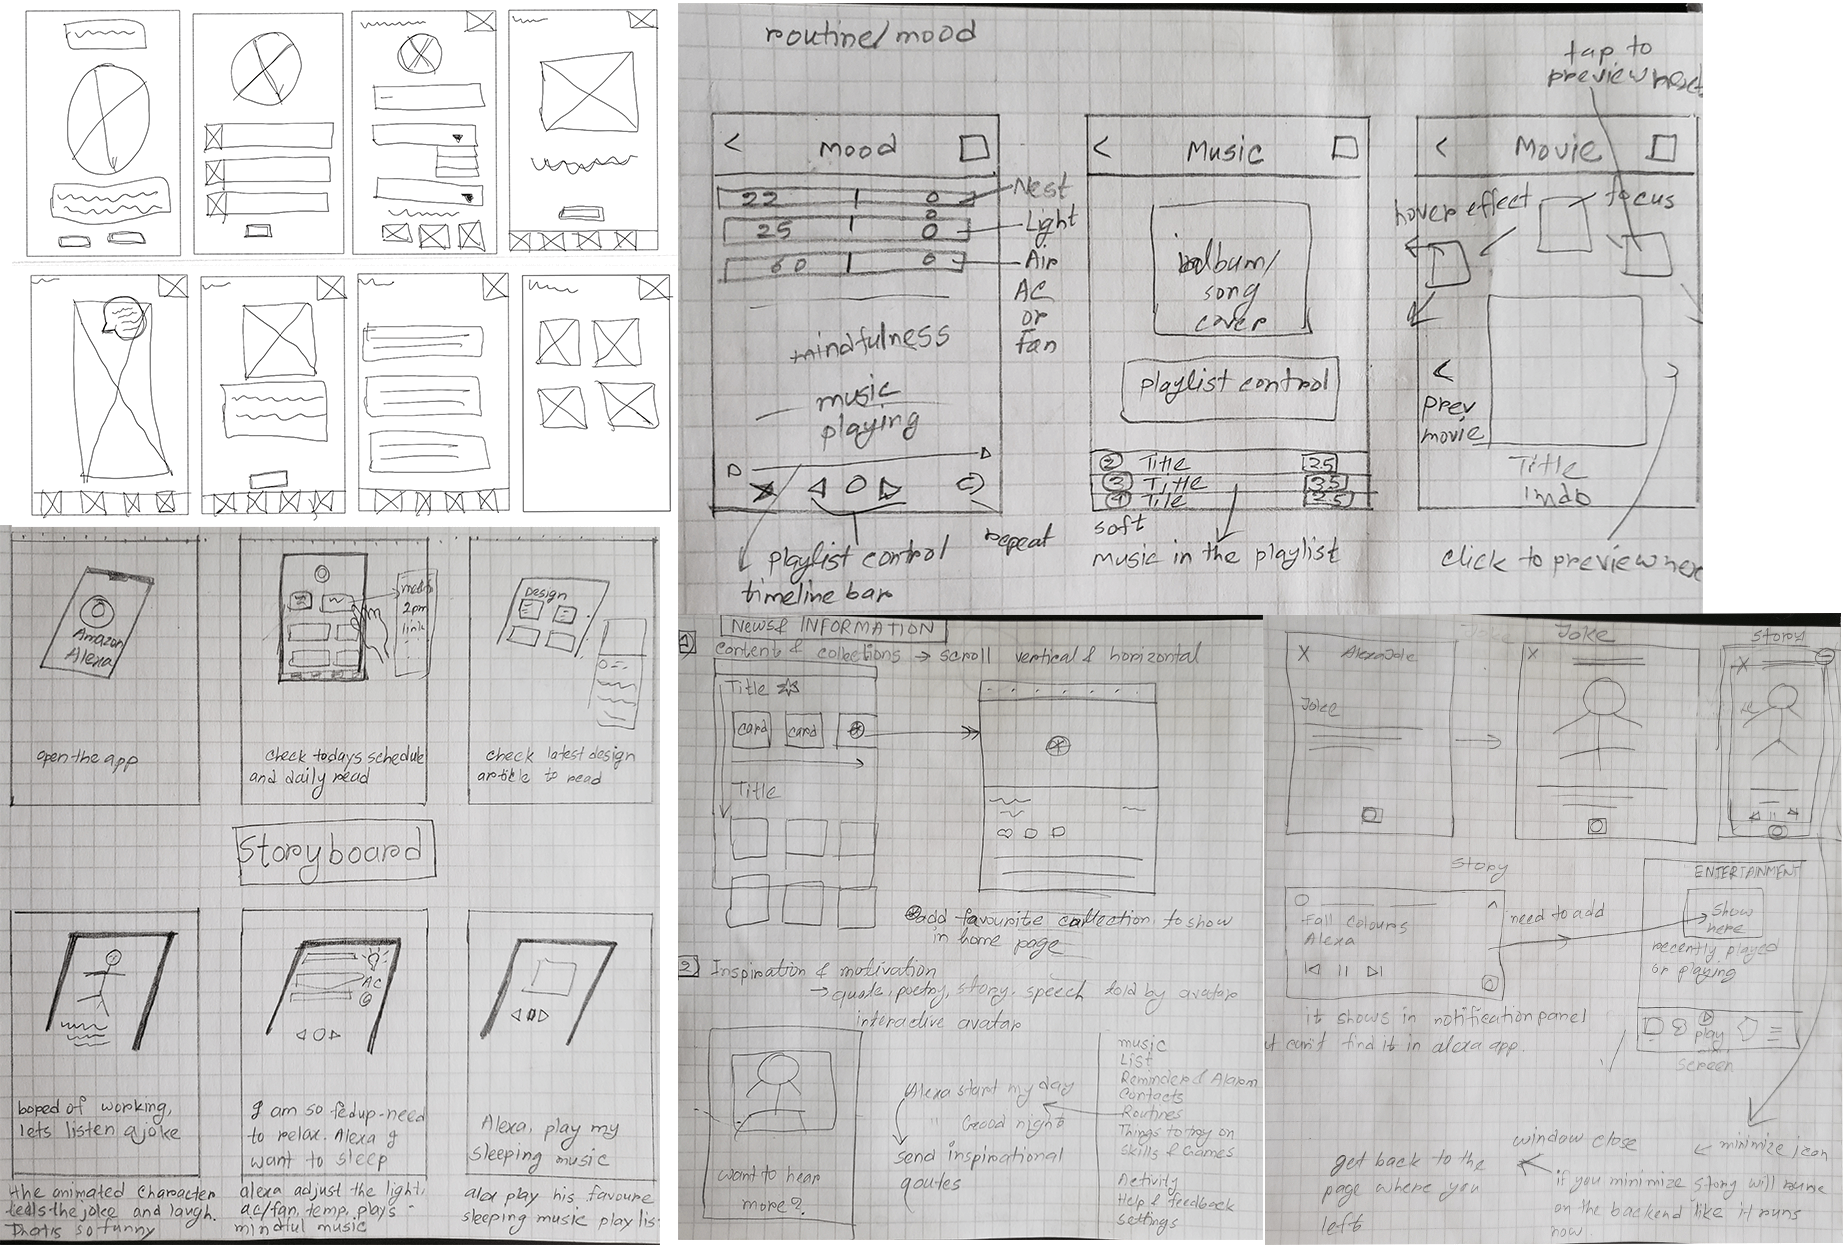 routine/mood
tap to
preview next
< mood
22
25
60
Nest
Light
Air
AC
or
fan
mindfulness
music
playing
playlist control
timeline bar
repeat
< Music
album/
song
cover
playlist control
2 Title 2.5
3 Title 3.5
4 Title 2.5
soft
music in the playlist
< Movie
hover effect
focus
<
prev
movie
>
Title
click to preview nex
Amazon
Alexa
open the app
2pm
link
check todays schedule
and daily read
Design
check latest design
article to read
Storyboard
bored of working,
lets listen a joke
the animated character
tells the joke and laugh.
Thats so funny
AC
I am so fedup-need
to relax. Alexa I
want to sleep
alexa adjust the light,
ac/fan, temp, plays
mindful music
Alexa, play my
sleeping music
alexa play his favoure
sleeping music play lis
NEWS & INFORMATION
1) content & collections → scroll vertical & horizontal
Title
card card
Title
add favourite collection, to show
in home page
2) Inspiration & motivation
→ quote, poetry, story, speech told by avatar
interactive avatar
want to hear
more?
Alexa start my day
" Good night
send inspirational
qoutes
music
List
Reminder & Alarm
Contacts
Routines
Things to try on
Skills & Games
Activity
Help & feedback
settings
X Alexa Joke
Joke
Joke
X
story
X
story
Fall Colours
Alexa
need to add
ENTERTAINMENT
Show
here
recently played
or playing
play
screen
it shows in notification panel
but can't find it in alexa app.
window close
get back to the
page where you
left
minimize icon
if you minimize story will rune
on the backend like it runs
now.